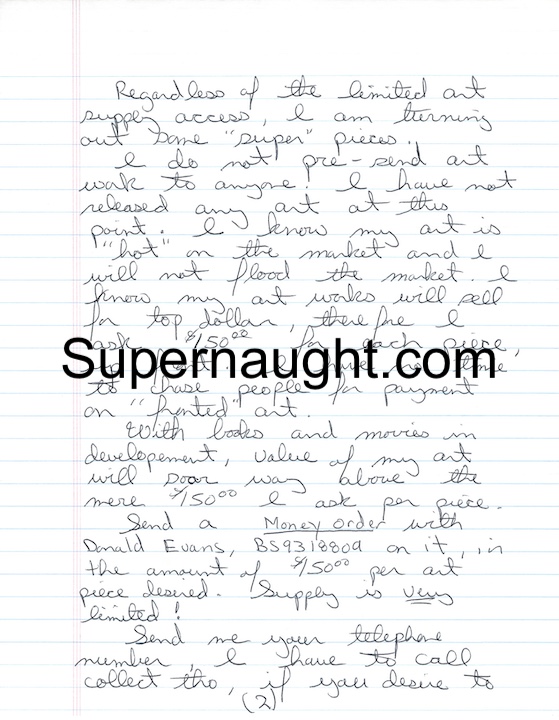 Regardless of the limited art
supply access, I am turning
out some "super" pieces.
I do not pre-send art
work to anyone. I have not
released any art at this
point. I know my art is
"hot" on the market and I
will not flood the market. I
know my art works will sell
for top dollar, therefore I
ask $150.00 for each piece,
Supernaught.com
to chase people for payment
on "fronted" art.
With books and movies in
developement, value of my art
will soar way above the
mere $150.00 I ask per piece.
Send a Money Order with
Donald Evans, BS9318809 on it, in
the amount of $150.00 per art
piece desired. Supply is very
limited!
Send me your telephone
number, I have to call
collect tho, if you desire to
(2)